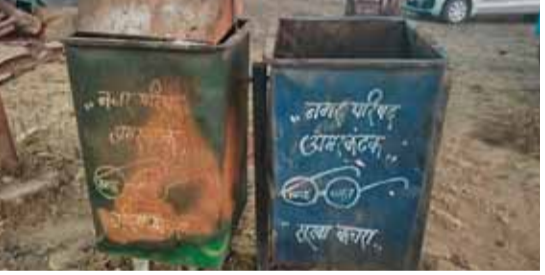 "नगर परिषद
अमरकंटक
"नगर परिषद
अमरकंटक"
स्वच्छ भारत
"सूखा कचरा"